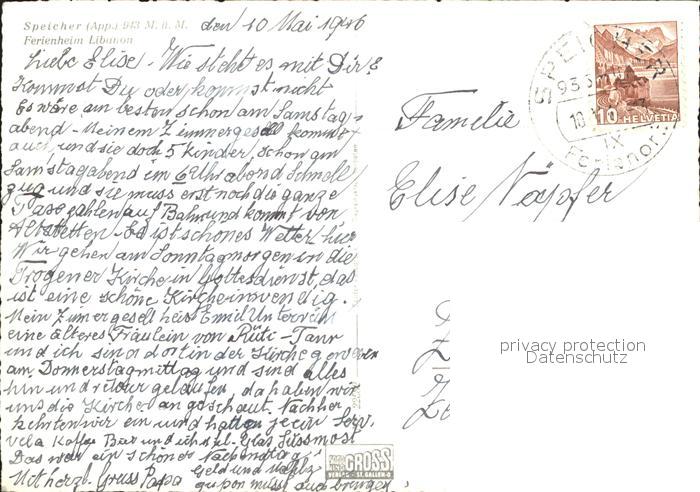 Speicher (App.) 943 M. ü. M.
Ferienheim Libanon
den 10 Mai 1946
Liebe Elise - Wie steht es mit Dir?
Kommst Du oder kommst nicht
Es wäre am besten schon am Samstag-
abend - Meinem Zimmergesell kommt
auch und sie doch 5 kinder, schon am
Samstagabend im 6 Uhr abend Schnell
zug und sie muss erst noch die ganze
zahlen auf Bahn und kommt von
Altstetten - Es ist schönes Wetter hier
Wir gehen am Sonntagmorgen in die
Trogener Kirche in Gottesdienst, das
ist eine schöne Kirche inwendig.
Mein Zimergesell heist Emil
eine älteres Fräulein von Rüti - Tann
und ich sind dort in der Kirche gewesen
am Donnerstagmittag und sind alles
hin und retour gelaufen, da haben wir
uns die Kirche angeschaut. Nachher
kehrten wir ein und hatten jedin Serv.
vela Kaffe Bar und ich Glas Süssmost
Das war ein schöner Nachmittag
Mit herzl. Gruss Papa Geld und
gupon musst auch bringen
Familie
Elise Näpfer
SPEICHER
10
HELVETIA
IX
Ferienor
privacy protection
Datenschutz
GROSS
ST. GALLEN